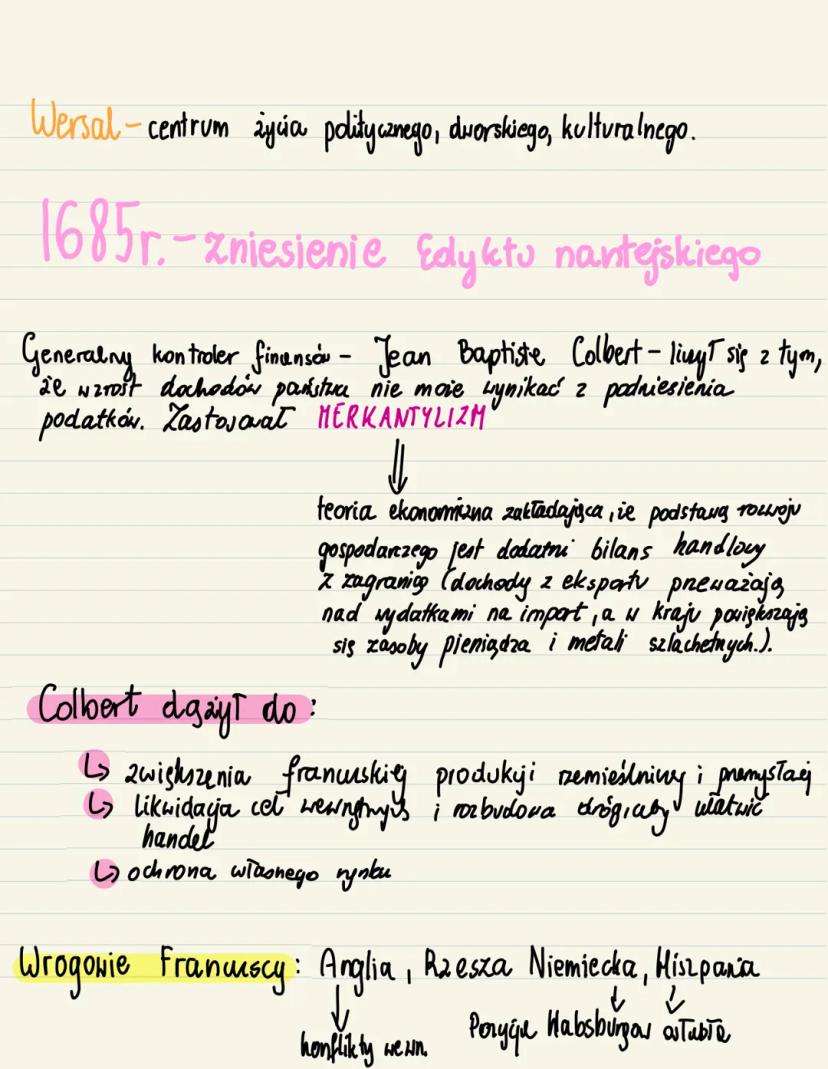 Wersal - centrum życia politycznego, dworskiego, kulturalnego.
1685r. - zniesienie Edyktu nantejskiego
Generalny kontroler finansów - Jean Baptiste Colbert - liczył się z tym,
że wzrost dochodów państwa nie może wynikać z podniesienia
podatków. Zastosował MERKANTYLIZM
teoria ekonomiczna zakładająca, że podstawą rozwoju
gospodarczego jest dodatni bilans handlowy
z zagranicą (dochody z eksportu przeważają
nad wydatkami na import, a w kraju powiększają
się zasoby pieniądza i metali szlachetnych.).
Colbert dążył do:
↳ zwiększenia francuskiej produkcji rzemieślniczej i przemysłaej
↳ likwidacja ceł wewnętrznych i rozbudowa dróg, aby ułatwić
handel
↳ ochrona własnego rynku
Wrogowie Francuscy: Anglia, Rzesza Niemiecka, Hiszpania
konflikty wewn. Pozycje Habsburgów osłabłe